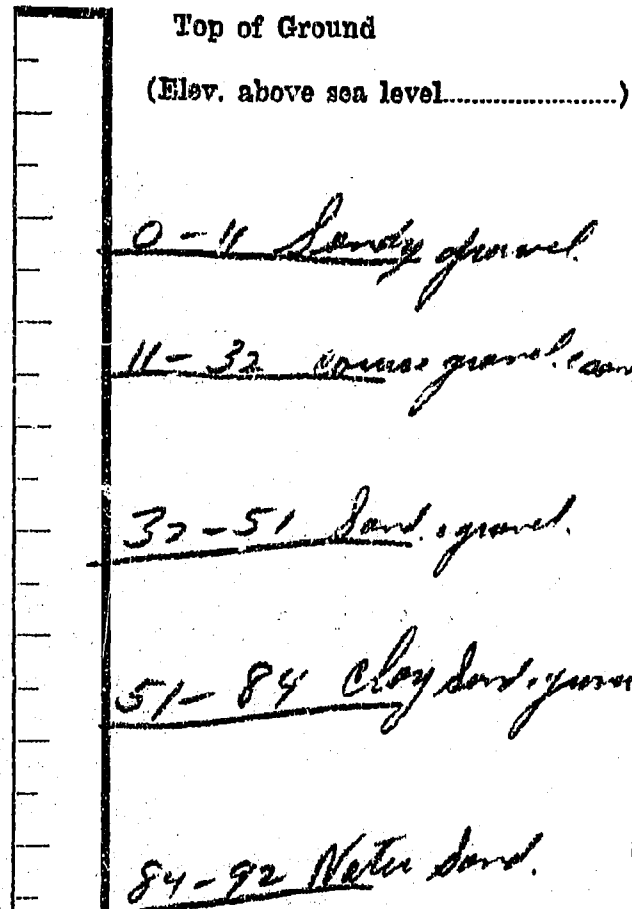 Top of Ground
(Elev. above sea level....................)
0-11 Sandy gravel.
11-32 course gravel.
32-51 Sand. gravel.
51-84 Clay Sand.
84-92 Water Sand.